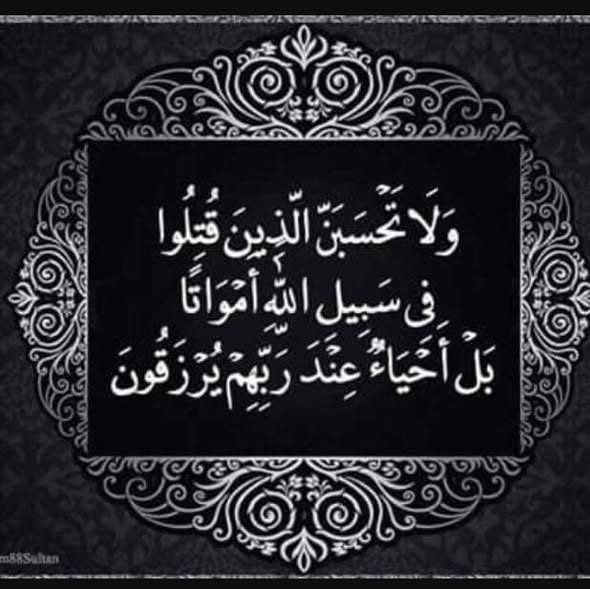 وَلَا تَحْسَبَنَّ الَّذِينَ قُتِلُوا
فِى سَبِيلِ اللَّهِ أَمْوَاتًا
بَلْ أَحْيَاءٌ عِنْدَ رَبِّهِمْ يُرْزَقُونَ
m88Sultan